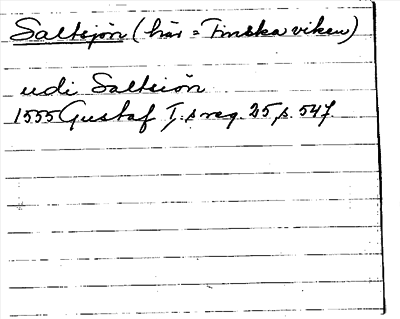 Saltsjön (här = Finska viken)
udi Saltsiön
1555 Gustaf I:s reg. 25 p. 547.